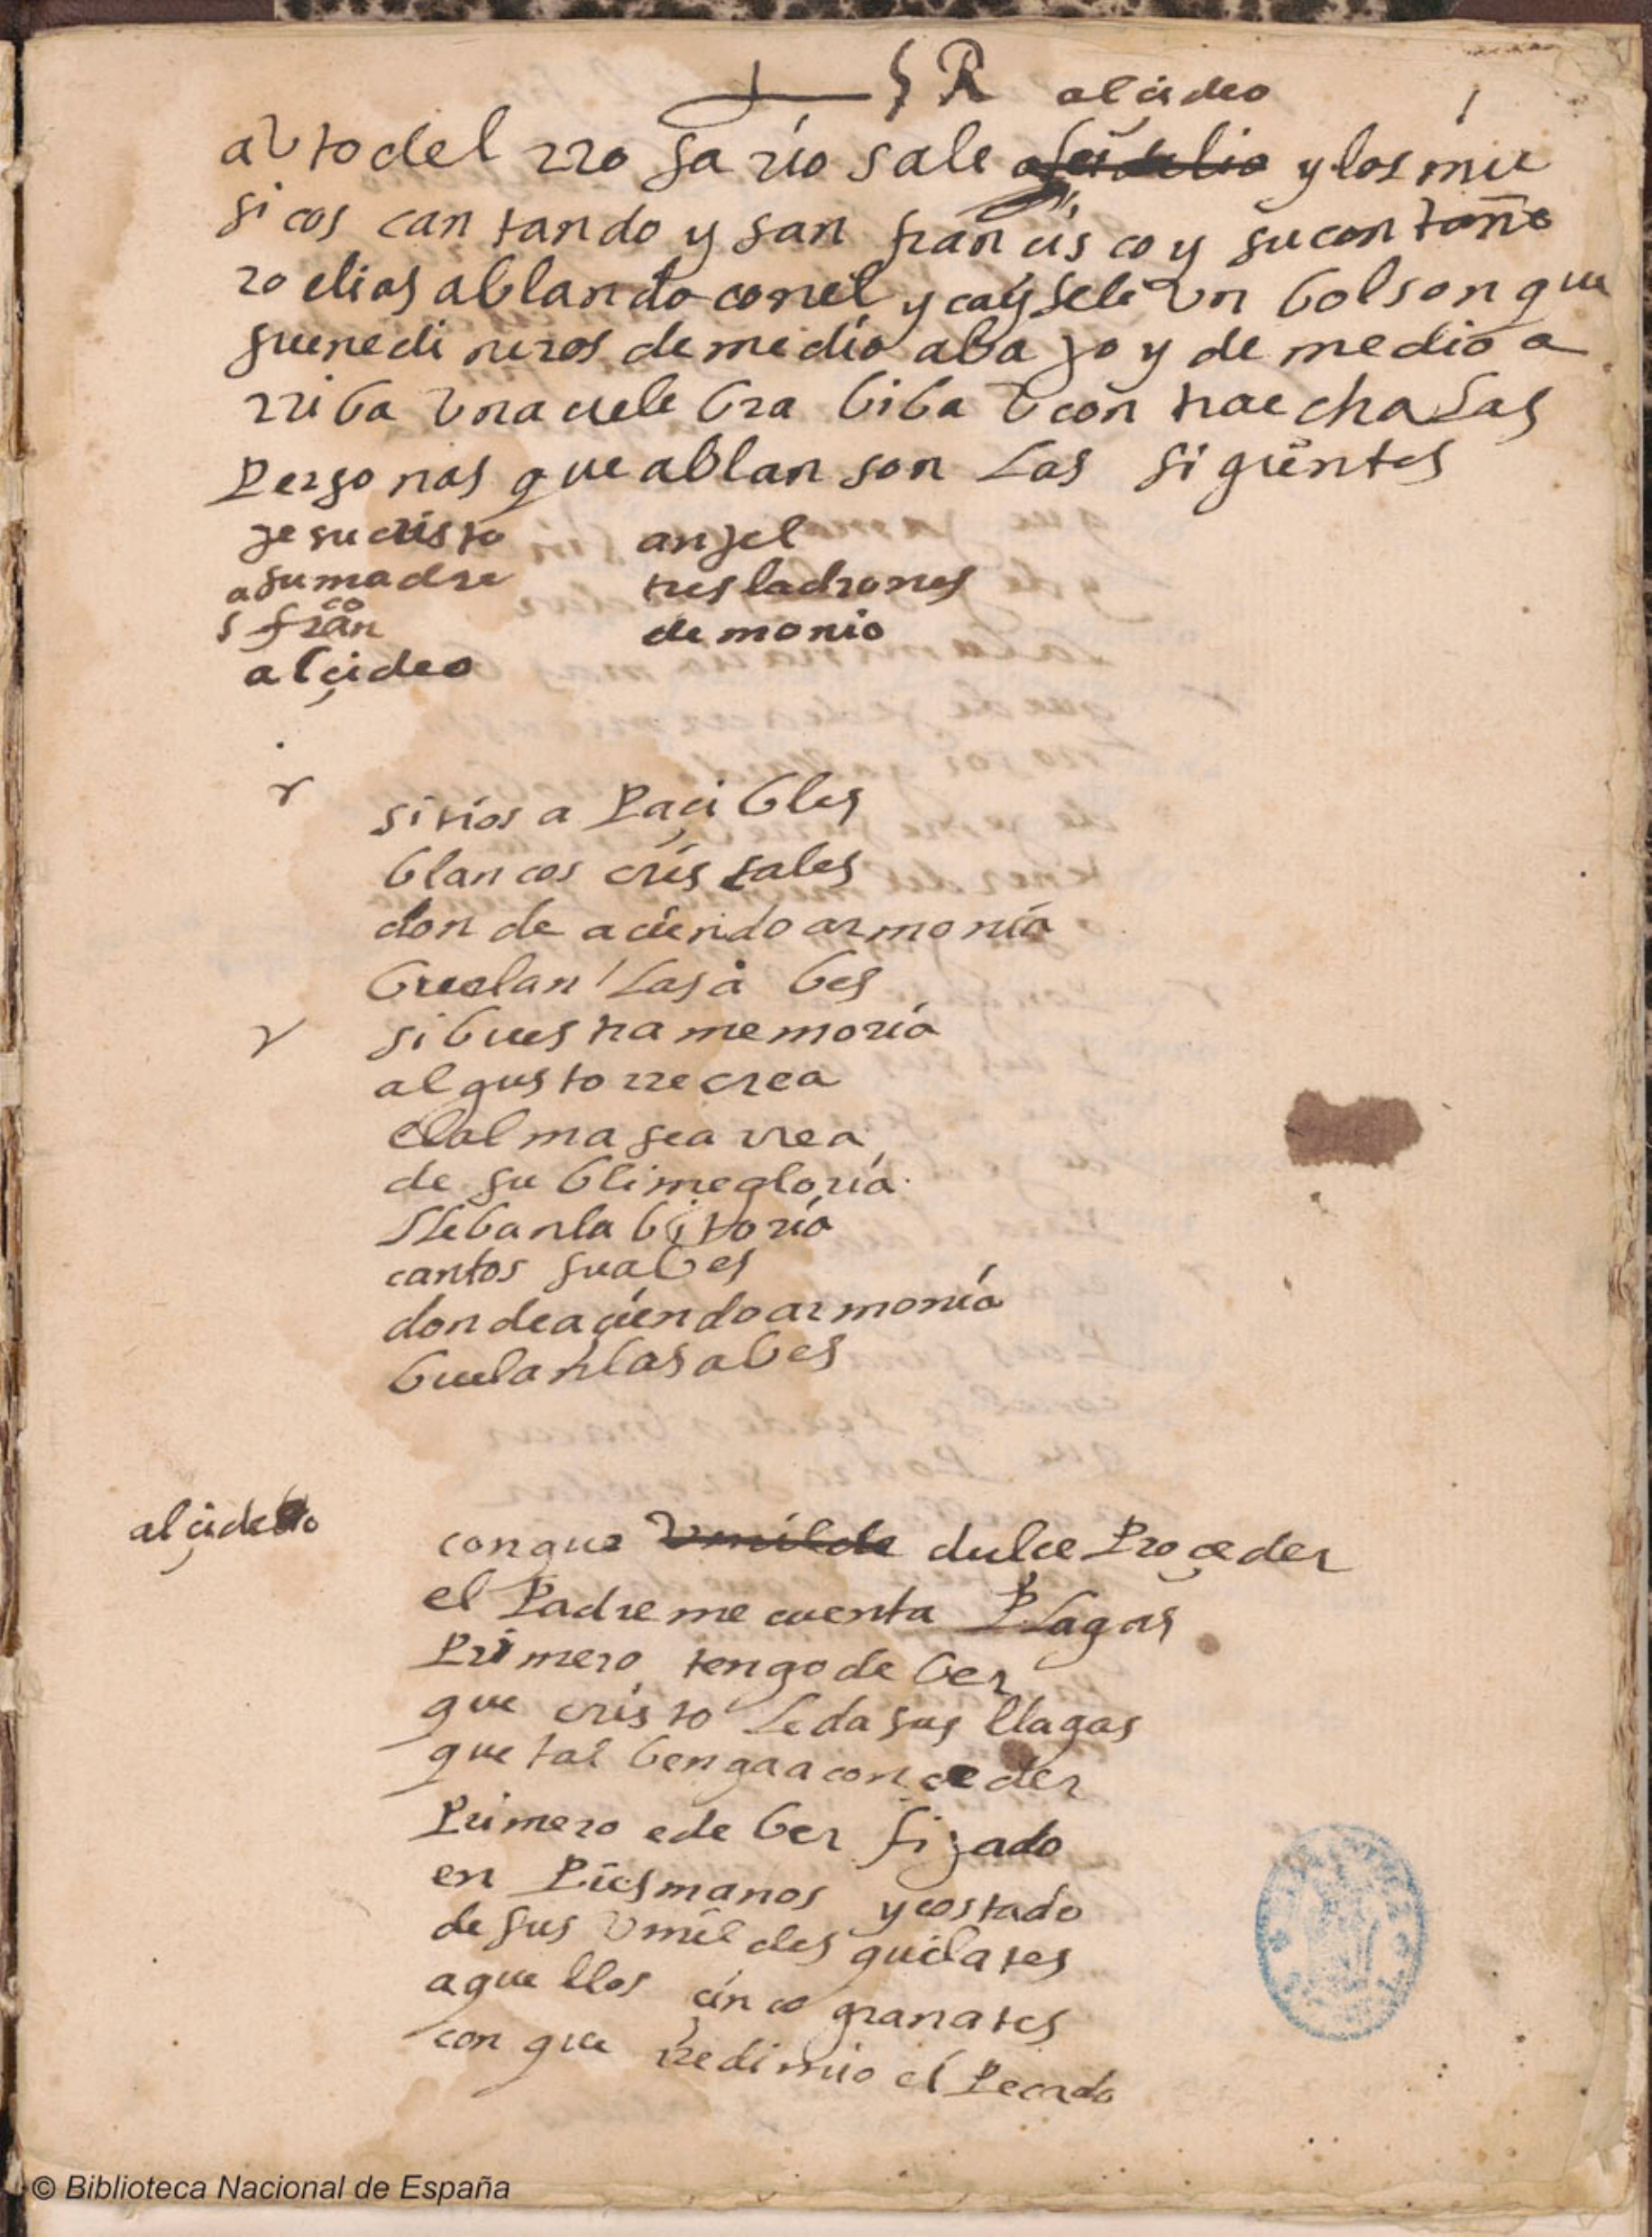 § R alcideo 1
auto del rrosario sale y los mu
sicos cantando y san francisco y su conpañe
ro elias ablando con el y caysele un bolson que
suene dineros de medio abajo y de medio a
rriba una culebra biba u contraecha las
Personas que ablan son Las siguentes
jesucristo anjel
a su madre tres ladrones
s franco demonio
alçideo
sitios a Paçibles
blancos cristales
donde aciendo armonia
buelan Las abes
si buestra memoria
al gusto rrecrea
el alma sea rrea
de sublime gloria
lleban la bitoria
cantos suabes
donde açiendo armonia
buelan las abes
alçideo
con que umilde dulce Proçeder
el Padre me cuenta Plagas
Primero tengo de ber
que cristo Le da sus llagas
que tal benga a conceder
Primero e de ber fijado
en Pies manos y costado
de sus umildes quilates
aquellos çinco granates
con que rredimio el Pecado
© Biblioteca Nacional de España